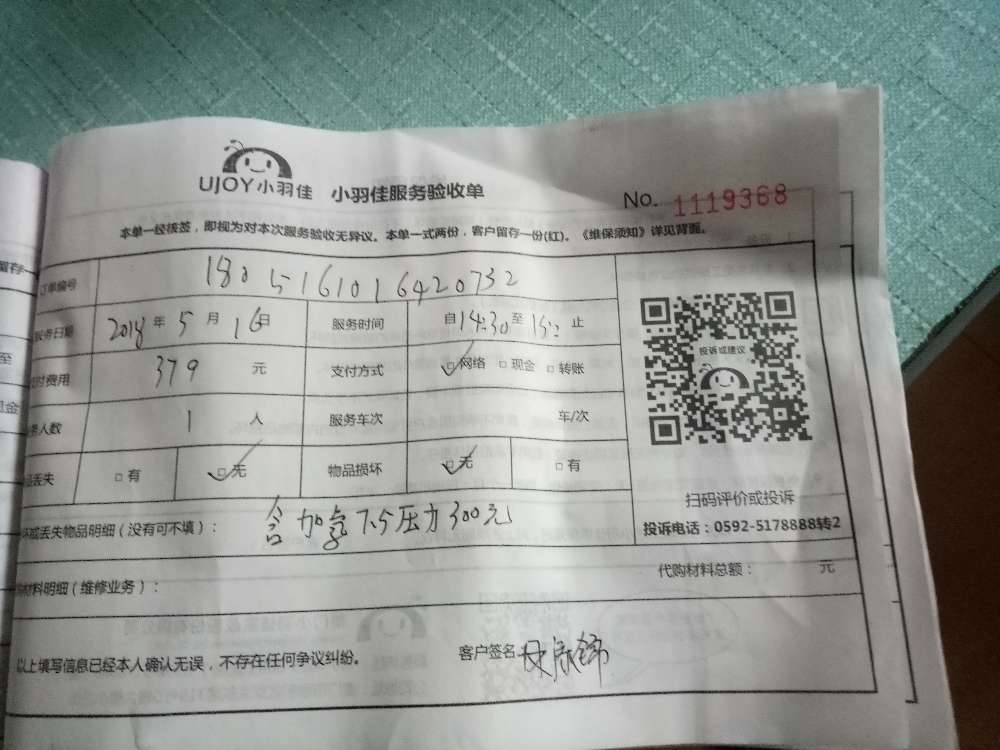 UJOY小羽佳 小羽佳服务验收单
No. 1119368
本单一经核签，即视为对本次服务验收无异议。本单一式两份，客户留存一份(红)。《维保须知》详见背面。
订单编号 1805161016420732
服务日期 2018年5月16日 服务时间 自14:30至15: 止
付费用 379 元 支付方式 ☑网络 □现金 □转账
务人数 1 人 服务车次 车/次
品丢失 □有 ☑无 物品损坏 ☑无 □有
投诉或建议
扫码评价或投诉
投诉电话：0592-5178888转2
坏或丢失物品明细（没有可不填）： 含加氢7.5压力300元
材料明细（维修业务）： 代购材料总额： 元
以上填写信息已经本人确认无误，不存在任何争议纠纷。 客户签名
留存一
至
现金